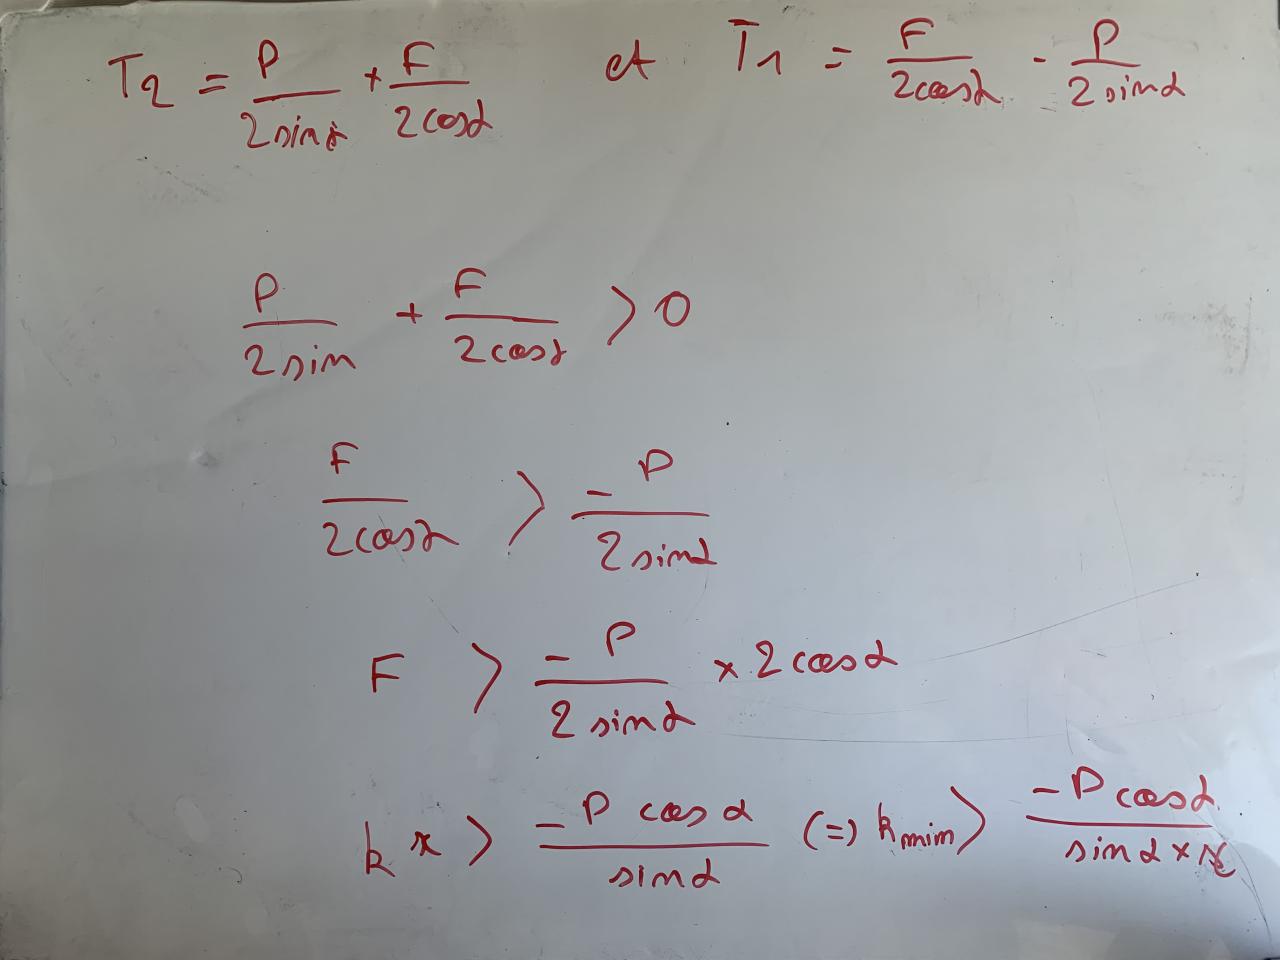 T2 = P/(2 sin α) + F/(2 cos α) et T1 = F/(2 cos α) - P/(2 sin α)
P/(2 sin) + F/(2 cos α) > 0
F/(2 cos α) > -P/(2 sin α)
F > -P/(2 sin α) × 2 cos α
k x > -P cos α/(sin α) (=) kmin > -P cos α/(sin α × x)